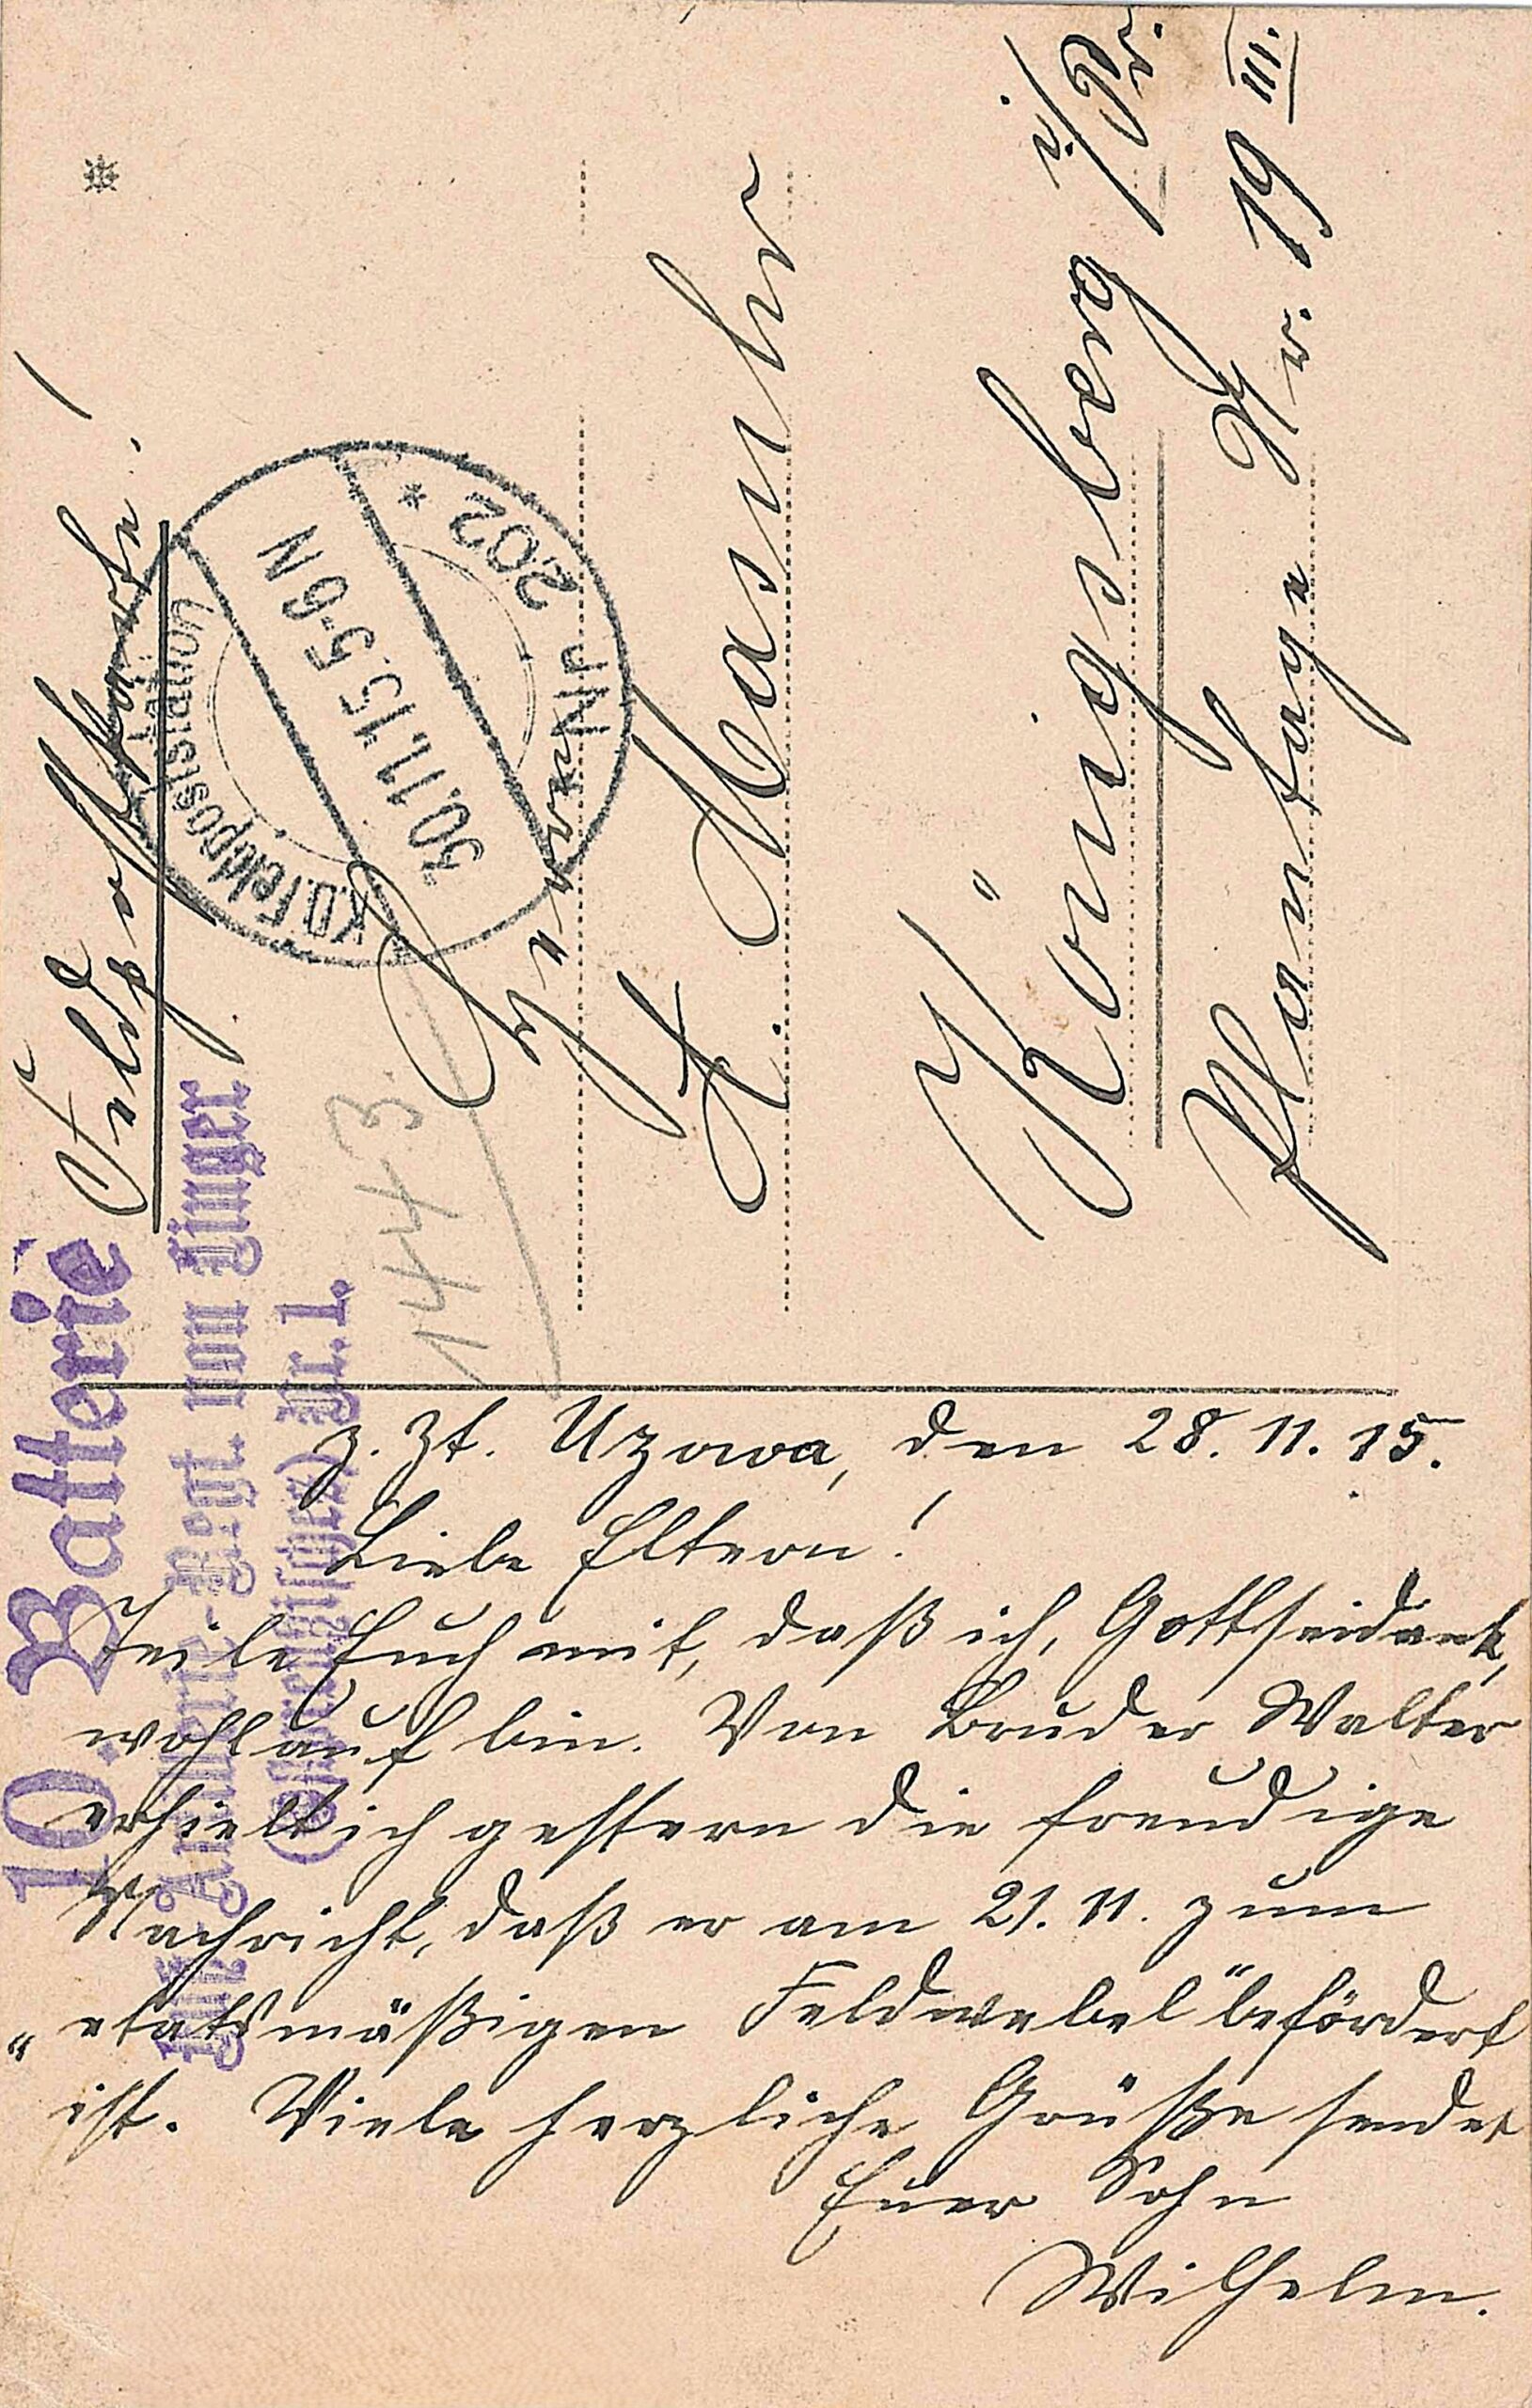 Feldpostkarte!
Herrn
A. Maschr
Königsberg i/Pr.
Plantage Nr. 19 III.
1443
K.D. Feldpoststation
30.11.15. 5-6 N
Nr. 202 *
10. Batterie
Fuß-Artillerie-Regt. von Linger
(Ostpreußisches) Nr. 1.
z. Zt. Uzowa, den 28. 11. 15.
Liebe Eltern!
Teile Euch mit, daß ich, Gottseidank,
wohlauf bin. Von Bruder Walter
erhielt ich gestern die freudige
Nachricht, daß er am 21. 11. zum
„etatsmäßigen Feldwebel“ befördert
ist. Viele herzliche Grüße sendet
Euer Sohn
Wilhelm.